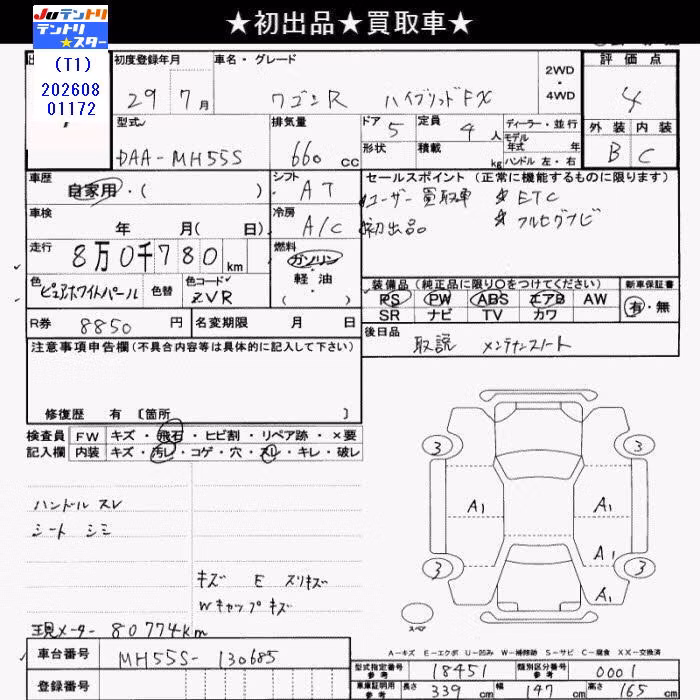 JUテントリ
テントリ★スター
★初出品★買取車★
(T1)
202608
01172
初度登録年月
29年 7月
車名・グレード
ワゴンR ハイブリッドFX
2WD
・
4WD
評価点
4
外装 内装
B C
型式
DAA-MH55S
排気量
660 cc
ドア 5
定員 4人
形状
積載 kg
ディーラー・並行
モデル年式 年
ハンドル 左・右
車歴
自家用・( )
シフト
AT
セールスポイント(正常に機能するものに限ります)
ユーザー買取車 ★ETC
初出品 ★フルセグナビ
車検 年 月( 日)
冷房
A/C
走行
8万0千780km
燃料
ガソリン
軽油
( )
色
ピュアホワイトパール
色替
色コード
ZVR
装備品(純正品に限り○をつけてください)
PS PW ABS エアB AW
SR ナビ TV カワ
新車保証書
有・無
R券 8850円
名変期限 月 日
後日品
取説 メンテナンスノート
注意事項申告欄(不具合内容等は具体的に記入して下さい)
修復歴 有 〔箇所 〕
検査員記入欄
FW キズ・飛石・ヒビ割・リペア跡・×要
内装 キズ・汚レ・コゲ・穴・スレ・キレ・破レ
ハンドル スレ
シート シミ
キズ E スリキズ
Wキャップキズ
現メーター 80774km
3 3
A1 A1
A1
3 3
A1
スペア
A-キズ E-エクボ U-凹み W-補修跡 S-サビ C-腐食 XX-交換済
車台番号 MH55S-130685
登録番号
型式指定番号 参考 18451
類別区分番号 参考 0001
車庫証明用 参考 長さ 339cm 幅 147cm 高さ 165cm